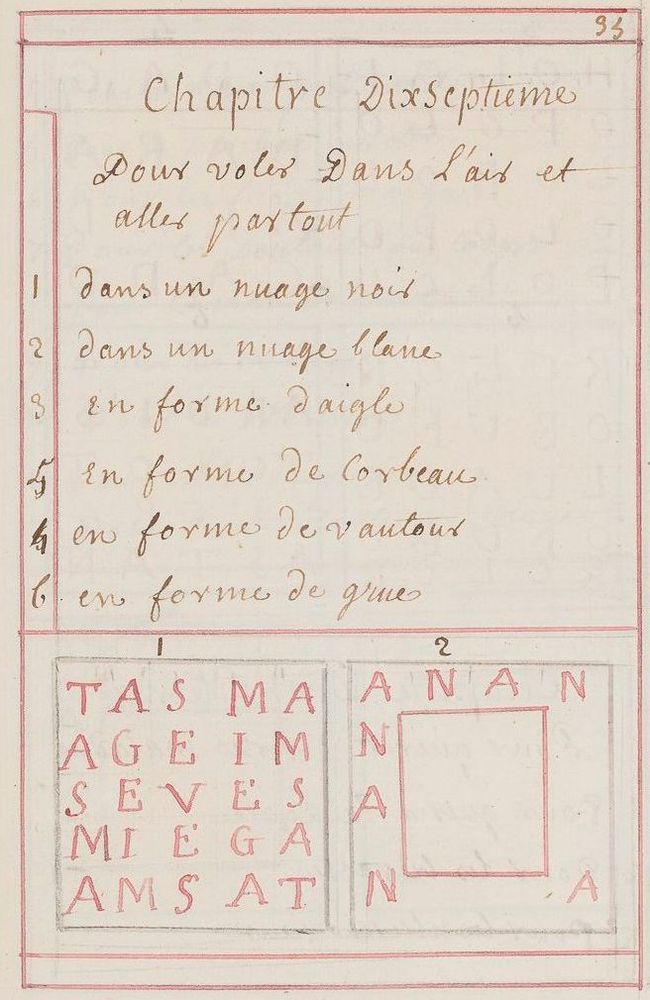 95
Chapitre Dixseptieme
Pour voler Dans L'air et
aller partout
1 dans un nuage noir
2 dans un nuage blanc
3 en forme daigle
5 en forme de Corbeau
4 en forme de vautour
6 en forme de grue
1 2
T A S M A
A G E I M
S E V E S
M I E G A
A M S A T
A N A N
N
A
N A